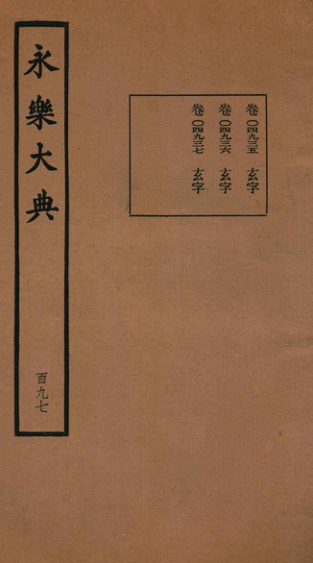 永樂大典
百九七
卷〇四九三五 玄字
卷〇四九三六 玄字
卷〇四九三七 玄字